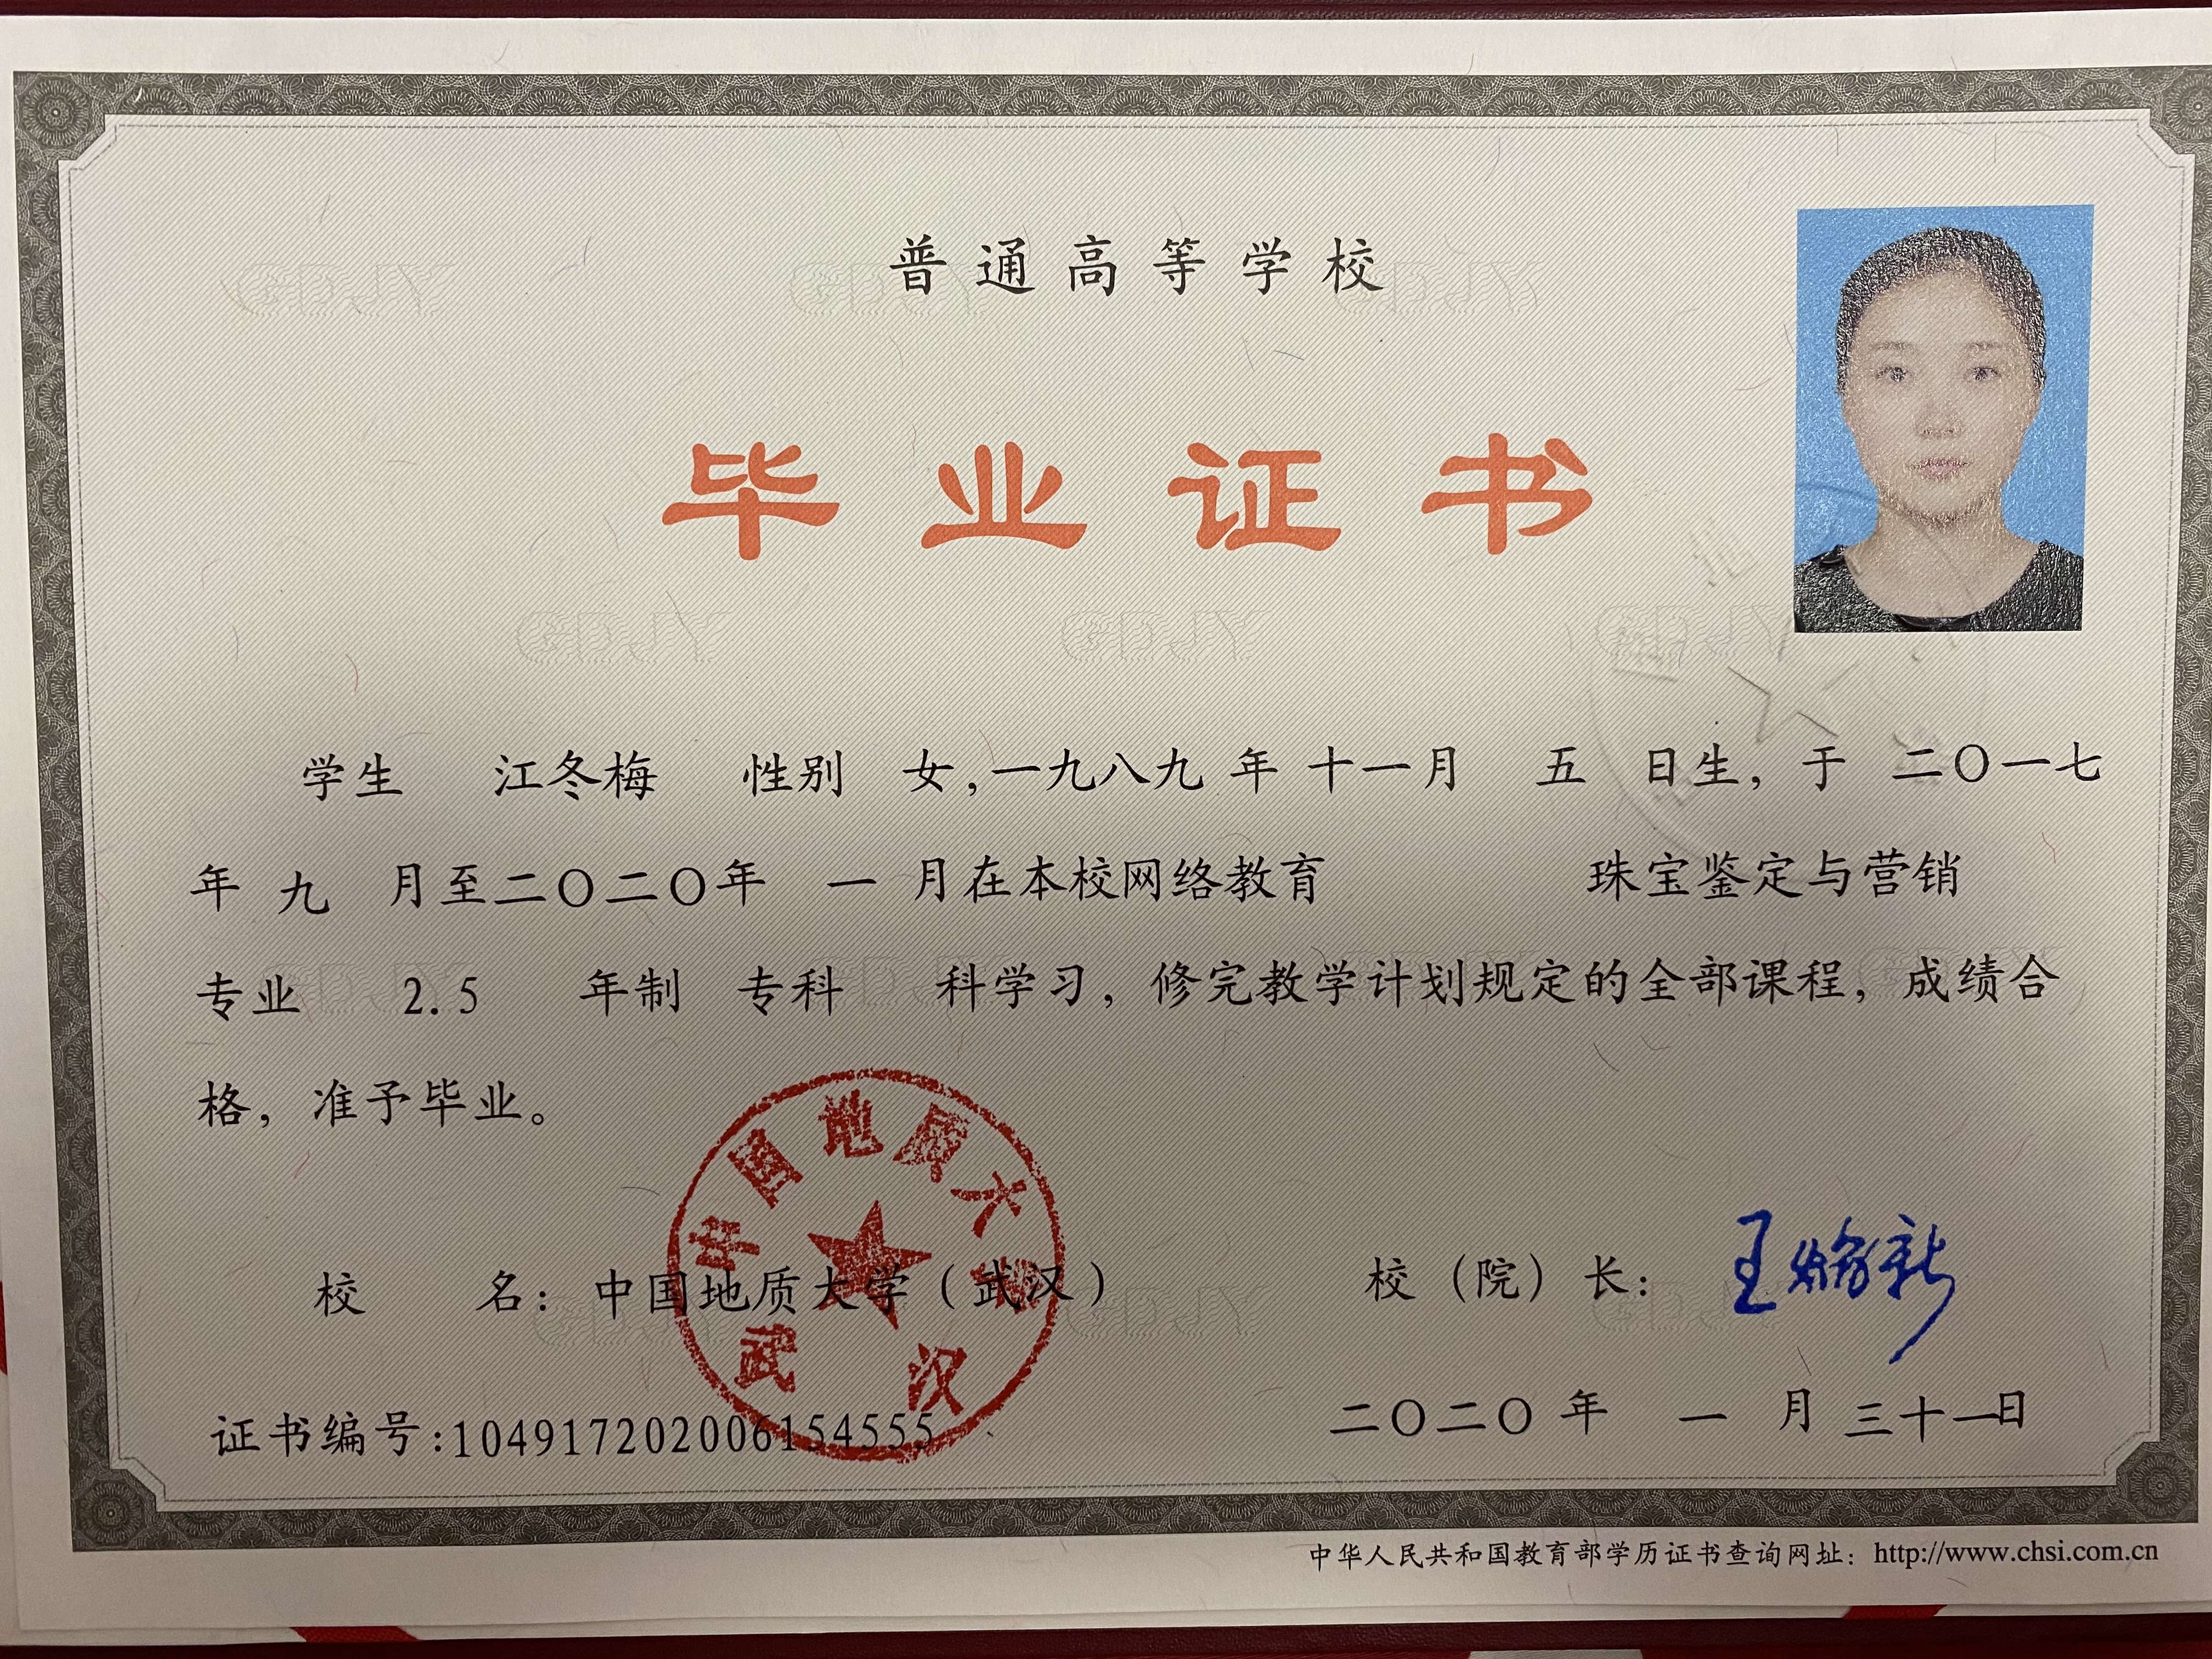 普通高等学校
毕业证书
学生 江冬梅 性别 女，一九八九 年 十一月 五 日生，于 二〇一七
年 九 月至二〇二〇年 一 月在本校网络教育 珠宝鉴定与营销
专业 2.5 年制 专科 科学习，修完教学计划规定的全部课程，成绩合
格，准予毕业。
中国地质大学
武汉
校 名：中国地质大学（武汉） 校（院）长：王焰新
证书编号:104917202006154555 二〇二〇 年 一 月 三十一日
中华人民共和国教育部学历证书查询网址：http://www.chsi.com.cn